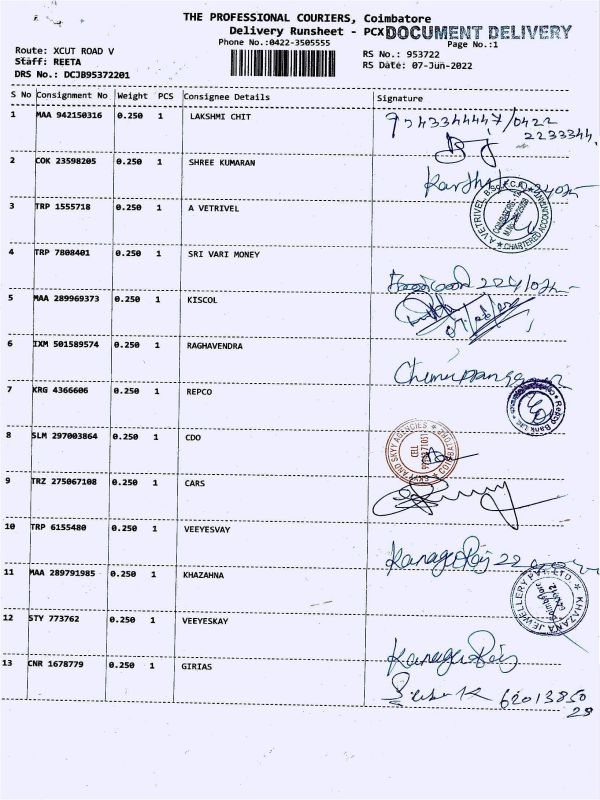 THE PROFESSIONAL COURIERS, Coimbatore
Delivery Runsheet - PCX DOCUMENT DELIVERY
Phone No.:0422-3505555
Page No.:1
Route: XCUT ROAD V
RS No.: 953722
Staff: REETA
RS Date: 07-Jun-2022
DRS No.: DCJB95372201
S No Consignment No Weight PCS Consignee Details Signature
1 MAA 942150316 0.250 1 LAKSHMI CHIT
9543344447/0422
2233344
2 COK 23598205 0.250 1 SHREE KUMARAN
3 TRP 1555718 0.250 1 A VETRIVEL
A VETRIVEL
CHARTERED ACCOUNTANT
4 TRP 7808401 0.250 1 SRI VARI MONEY
5 MAA 289969373 0.250 1 KISCOL
6 IXM 501589574 0.250 1 RAGHAVENDRA
7 KRG 4366606 0.250 1 REPCO
Repco Bank Ltd
8 SLM 297003864 0.250 1 CDO
SKYY AGENCIES
CELL
9 TRZ 275067108 0.250 1 CARS
10 TRP 6155480 0.250 1 VEEYESVAY
Kanaga Raj
11 MAA 289791985 0.250 1 KHAZAHNA
KHAZANA JEWELLERY PVT. LTD
12 STY 773762 0.250 1 VEEYESKAY
Kanaga Raj
13 CNR 1678779 0.250 1 GIRIAS
62013850
29